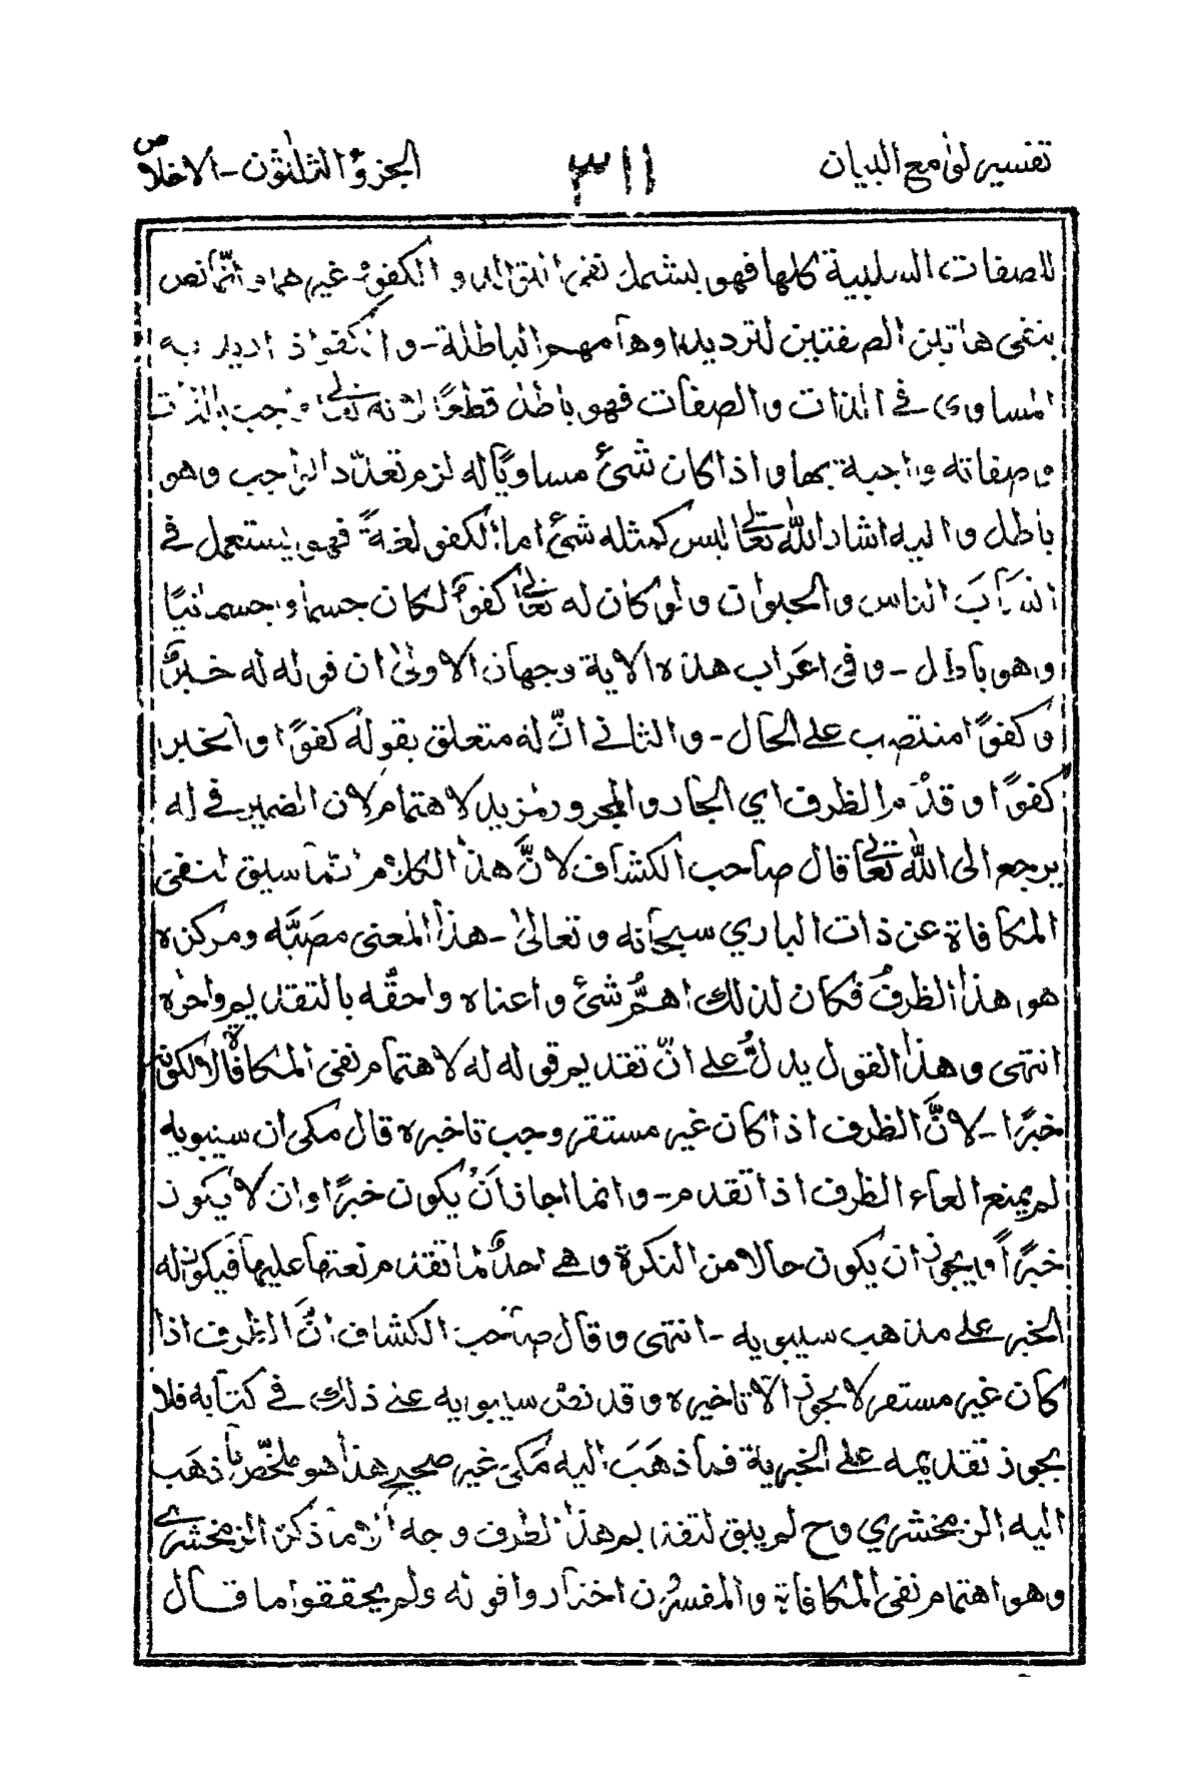 تفسير لوامع البيان
٣١١
الجزؤ الثلثون - الاخلاص
للصفات السلبية كلها فهو يشمل نفى التوالد و الكفؤ غيرهما و انّما نص
بنفى هاتين الصفتين لترديد اوهامهم الباطلة - و الكفو اذ اريد به
المساوى فى الذات والصفات فهو باطل قطعًا لانه تعالى واجب بالذات
و صفاته واجبة بها و اذا كان شئ مساويًا له لزم تعدّد الواجب وهو
باطل و اليه اشار الله تعالى ليس كمثله شئ اما الكفو لغةً فهو يستعمل فى
الناس و الحيوان ولو كان له تعالى كفوٌ لكان جسما و جسمانيًا
وهو باطل - و فى اعراب هذه الاية وجهان الاولىٰ ان قوله له خبرٌ
و كفوًا منتصب على الحال - و الثانى انّ له متعلق بقوله كفوًا و الخبر
كفوًا و قدّم الظرف اي الجار و المجرور لمزيد لاهتمام لان الضمير فى له
يرجع الى الله تعالى قال صاحب الكشاف لانَّ هذا الكلام انما سيق لنفى
المكافاة عن ذات الباري سبحانه و تعالىٰ - هذا المعنى مصَبّه و مركزه
هو هذا الظرف فكان لذلك اهمُّ شئ و اعناه و احقّه بالتقديم واحراه
انتهى و هذا القول يدلُّ على انّ تقديم قوله له لاهتمام نفى المكافاة لا لكونه
خبرًا - لانَّ الظرف اذا كان غير مستقر وجب تاخيره قال مكى ان سيبويه
لم يمنع الغاء الظرف اذا تقدم - و انما اجاز اَنْ يكون خبرًا و ان لا يكون
خبرًا و يجوز ان يكون حالا من النكرة و هى احدٌ لما تقدم نعتها عليها فيكون له
الخبر على مذهب سيبويه - انتهى و قال صاحب الكشاف انَّ الظرف اذا
كان غير مستقر لا يجوز الّا تاخيره و قد نصّ سيبويه على ذلك فى كتابه فلا
يجوز تقديمه على الخبرية فما ذهَبَ اليه مَكى غير صحيح هذا هو ملخّص ما ذهَب
اليه الزمخشري و ح لم يبق لتقديم هذا الظرف وجه الا ما ذكره الزمخشرى
وهو اهتمام نفى المكافاة و المفسرُون اختاروا قوله و لم يحققوا ما قال